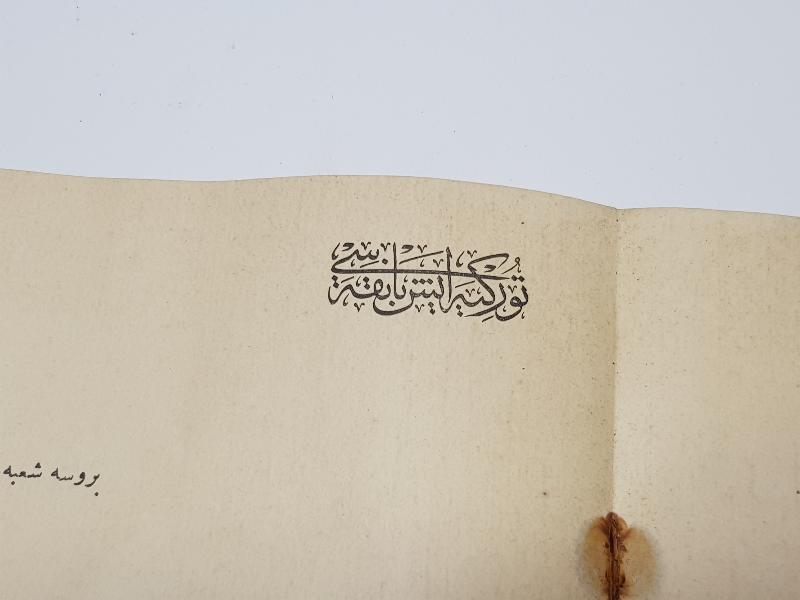 توركیه ایش بانقه سی
بروسه شعبه